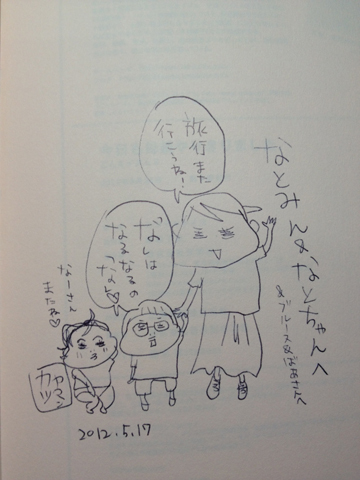 なとみん&なとちゃんへ
&ブルース&ばあさんへ
旅行また
行こうねー!
なしは
なるなるの
なし♡
なーさん
またね♡
ヤマン
カツ
2012.5.17